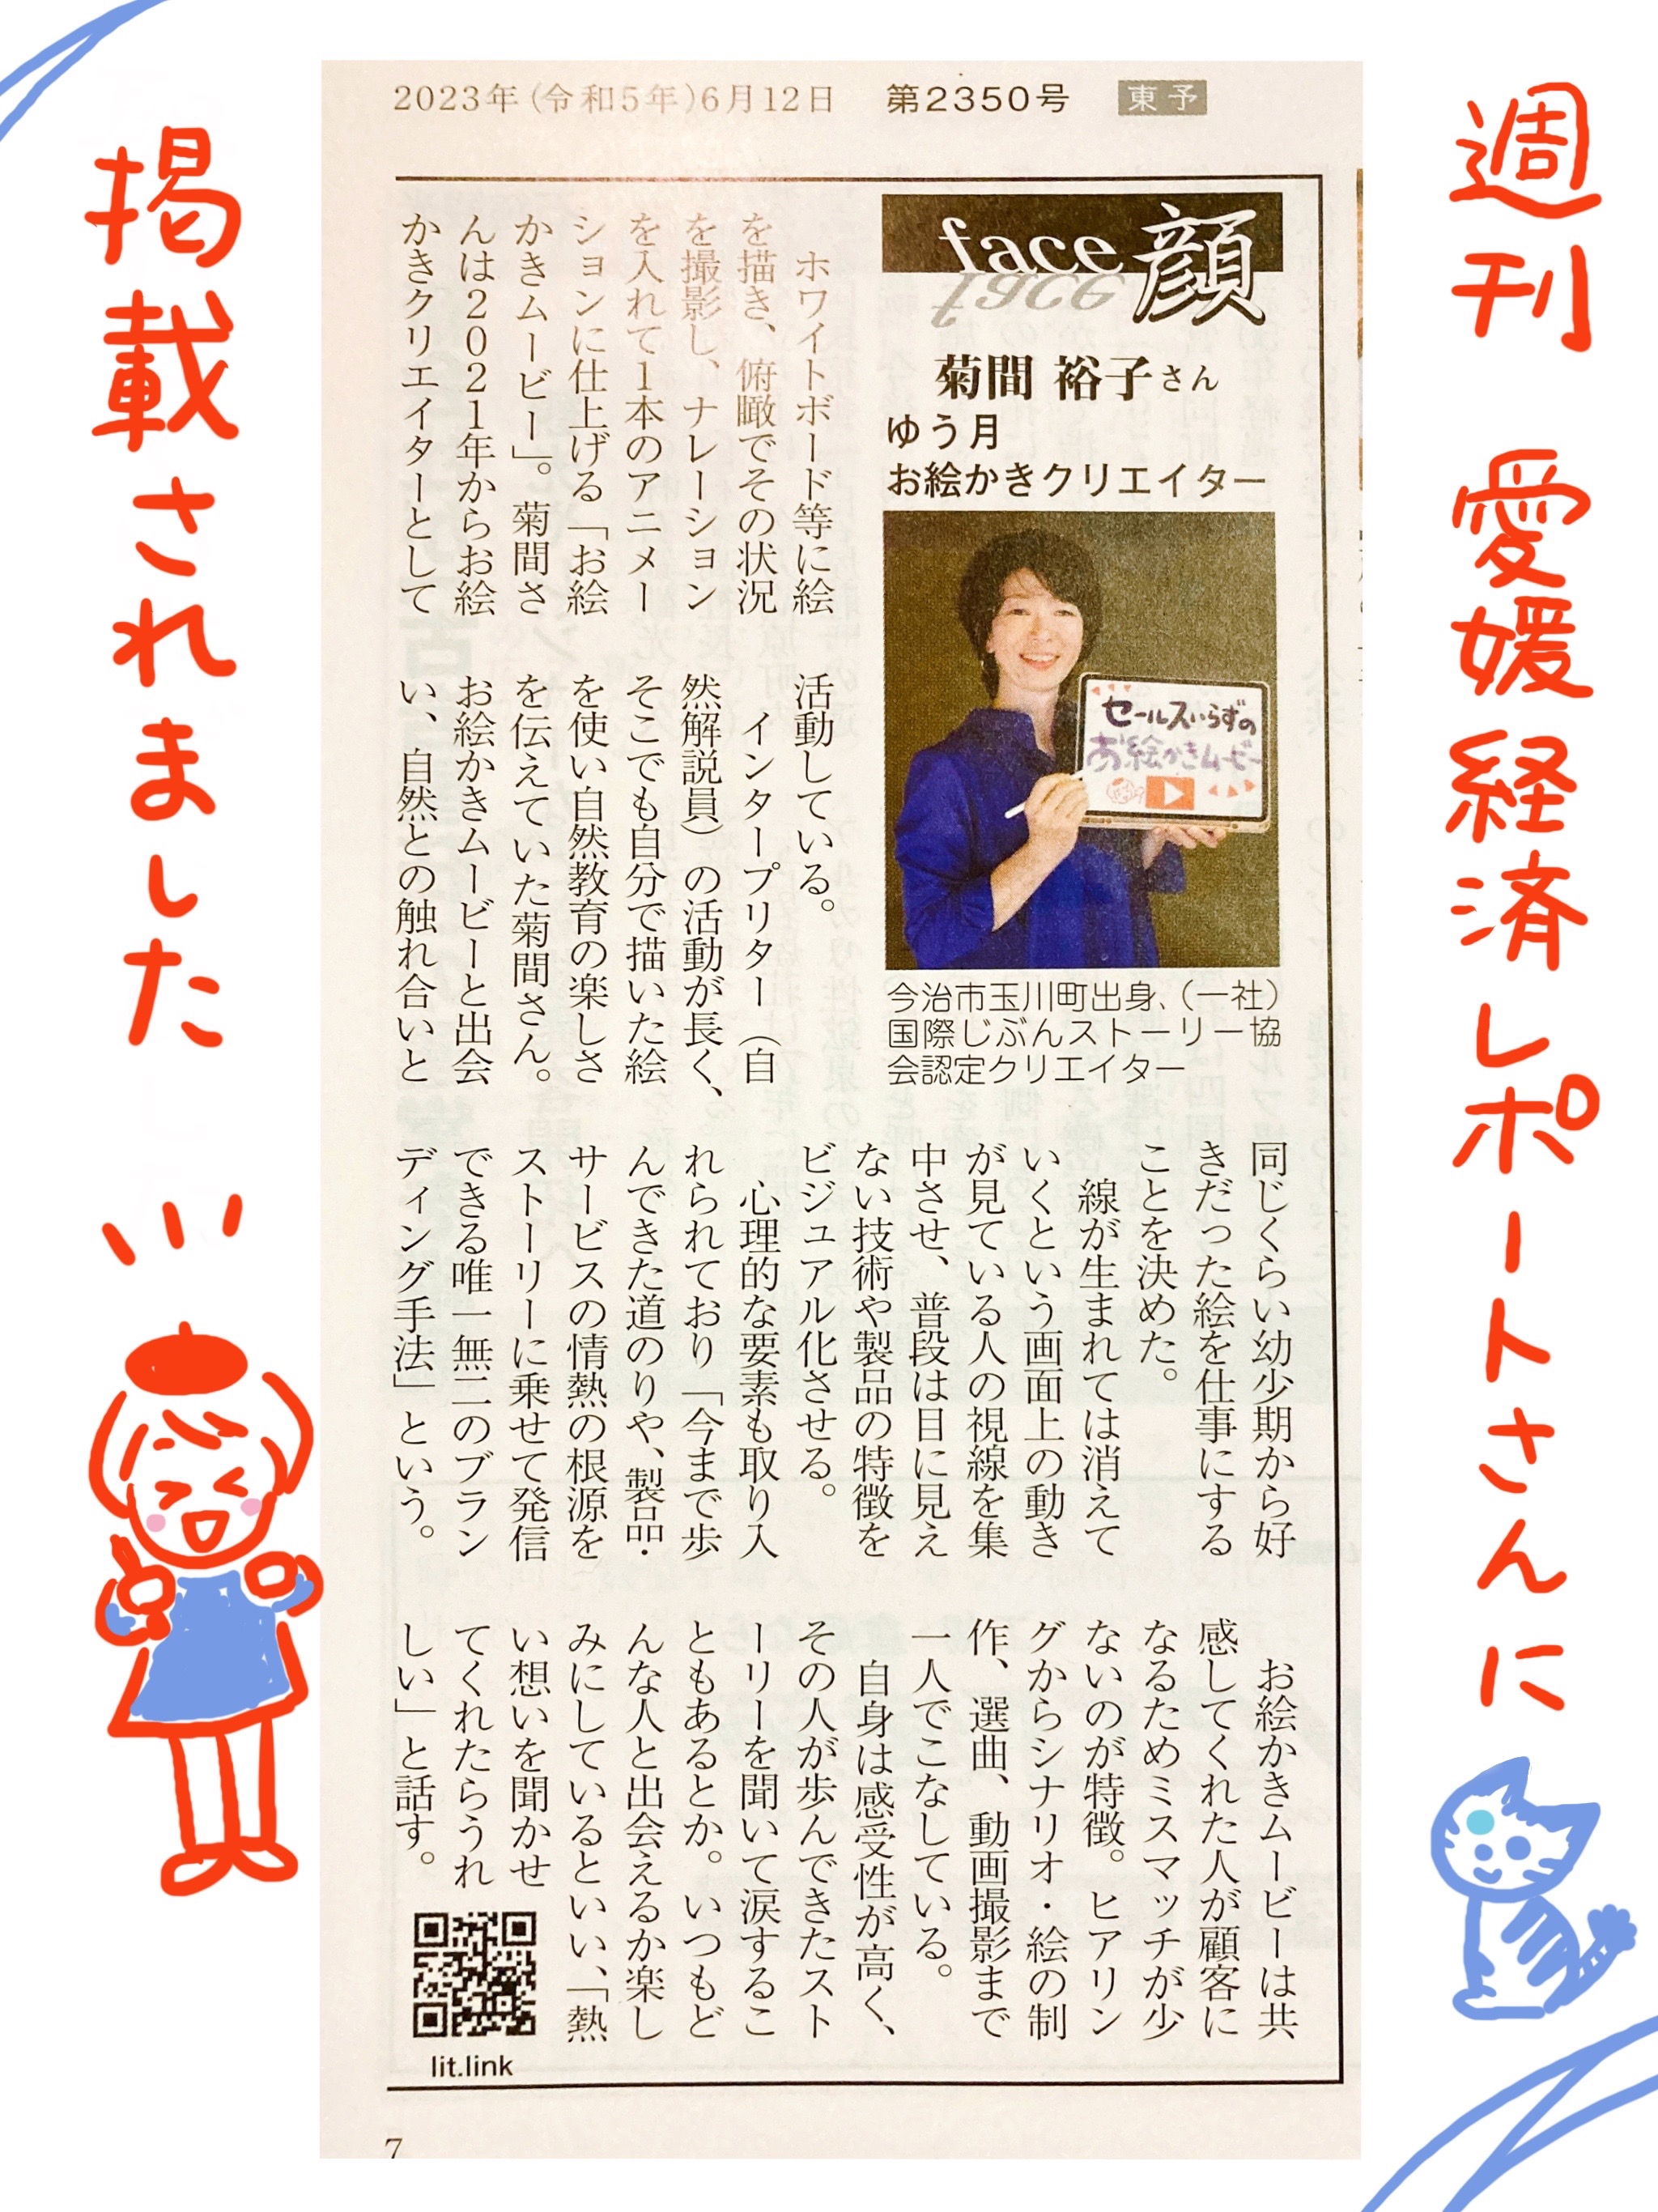 週刊 愛媛経済レポートさんに
掲載されました
2023年(令和5年)6月12日 第2350号 東予
face 顔
菊間 裕子さん
ゆう月
お絵かきクリエイター
セールスいらずの
お絵かきムービー
今治市玉川町出身、(一社)
国際じぶんストーリー協
会認定クリエイター
ホワイトボード等に絵
を描き、俯瞰でその状況
を撮影し、ナレーション
を入れて1本のアニメー
ションに仕上げる「お絵
かきムービー」。菊間さ
んは2021年からお絵
かきクリエイターとして
活動している。
インタープリター(自
然解説員)の活動が長く、
そこでも自分で描いた絵
を使い自然教育の楽しさ
を伝えていた菊間さん。
お絵かきムービーと出会
い、自然との触れ合いと
同じくらい幼少期から好
きだった絵を仕事にする
ことを決めた。
線が生まれては消えて
いくという画面上の動き
が見ている人の視線を集
中させ、普段は目に見え
ない技術や製品の特徴を
ビジュアル化させる。
心理的な要素も取り入
れられており「今まで歩
んできた道のりや、製品・
サービスの情熱の根源を
ストーリーに乗せて発信
できる唯一無二のブラン
ディング手法」という。
お絵かきムービーは共
感してくれた人が顧客に
なるためミスマッチが少
ないのが特徴。ヒアリン
グからシナリオ・絵の制
作、選曲、動画撮影まで
一人でこなしている。
自身は感受性が高く、
その人が歩んできたスト
ーリーを聞いて涙するこ
ともあるとか。いつもど
んな人と出会えるか楽し
みにしているといい、「熱
い想いを聞かせ
てくれたらうれ
しい」と話す。
lit.link
7